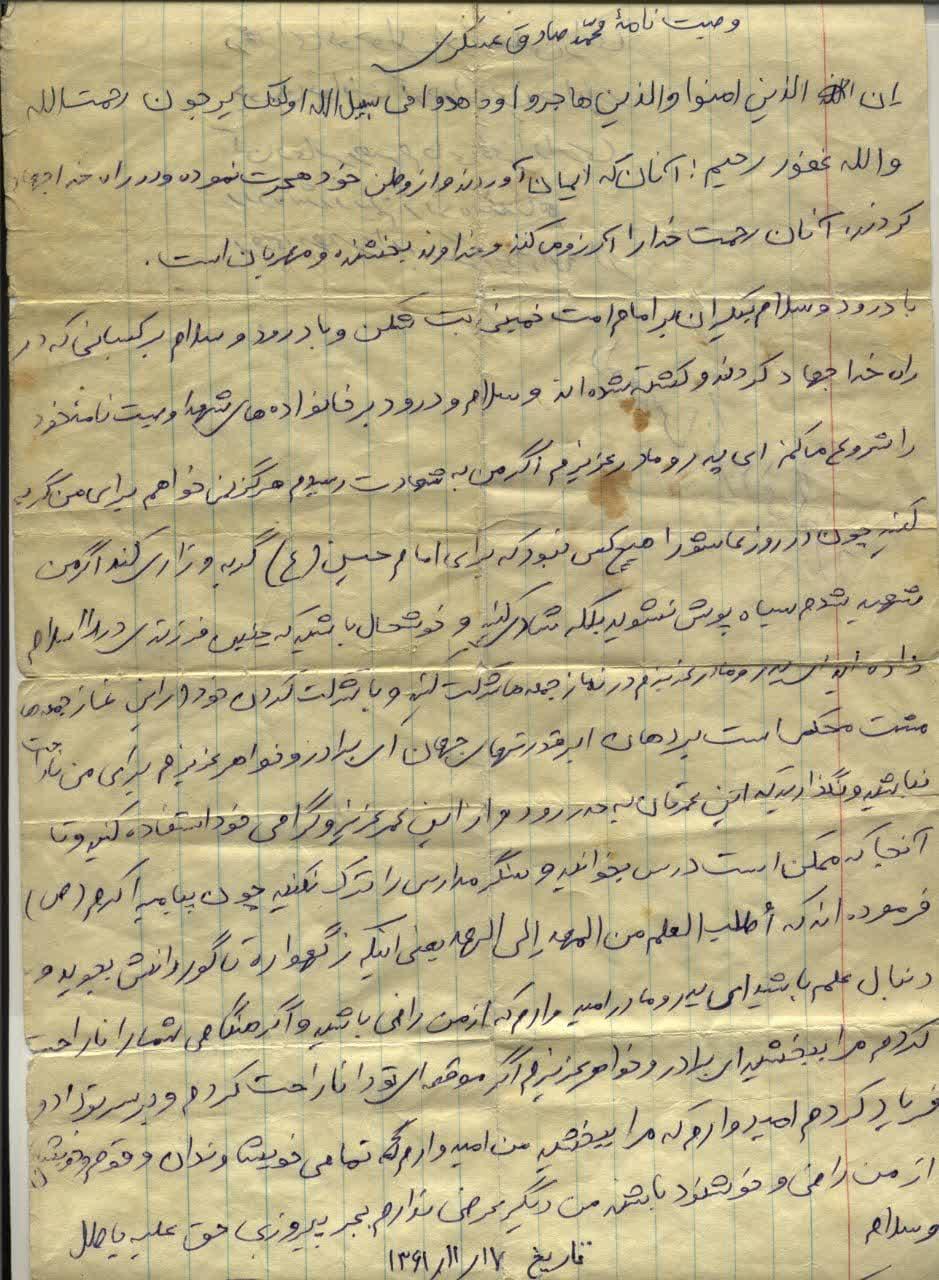 وصیت نامهٔ محمّد صادق عسگری
ان الذین امنوا والذین هاجروا وجاهدوا فی سبیل الله اولئک یرجون رحمت الله
والله غفور رحیم : آنان که ایمان آوردند و از وطن خود هجرت نموده و در راه خدا جهاد
کردند، آنان رحمت خدا را آرزو می کنند و خداوند بخشنده و مهربان است .
با درود و سلام بیکران بر امام امت خمینی بت شکن و با درود و سلام بر کسانی که در
راه خدا جهاد کردند و کشته شده اند و سلام و درود بر خانواده های شهدا وصیت نامهٔ خود
را شروع میکنم ای پدر و مادر عزیزم اگر من به شهادت رسیدم هرگز نمی خواهم برای من گریه
کنید چون در روز عاشورا هیچ کس نبود که برای امام حسین (ع) گریه و زاری کند اگر من
شهید شدم سیاه پوش نشوید بلکه شادی کنید و خوشحال باشید که چنین فرزندی در راه اسلام
داده اید ای پدر و مادر عزیزم در نماز جمعه ها شرکت کنید و با شرکت کردن خود در این نماز جمعه ها
مشت محکمی است بر دهان ابرقدرتهای جهان ای برادر و خواهر عزیزم برای من ناراحت
نباشید و نگذارید که این عمرتان به هدر رود و از این عمر عزیز و گرامی خود استفاده کنید و تا
آنجا که ممکن است درس بخوانید و سنگر مدارس را ترک نکنید چون پیامبر اکرم (ص)
فرموده اند که أطلب العلم من المهد إلی الحد یعنی اینکه ز گهواره تا گور دانش بجوید و
دنبال علم باشید ای پدر و مادر امید وارم که از من راضی باشید و اگر هنگامی شما را ناراحت
کردم مرا ببخشید ای برادر و خواهر عزیزم اگر موقعه ای تو را ناراحت کردم و بر سر تو داد و
فریاد کردم امیدوارم که مرا ببخشید من امیدوارم که تمامی خویشاوندان و قوم و خویشان
از من راضی و خوشنود باشند من دیگر عرضی ندارم بجز پیروزی حق علیه باطل
وسلام
تاریخ ۱۳۶۱/۱۱/۱۷